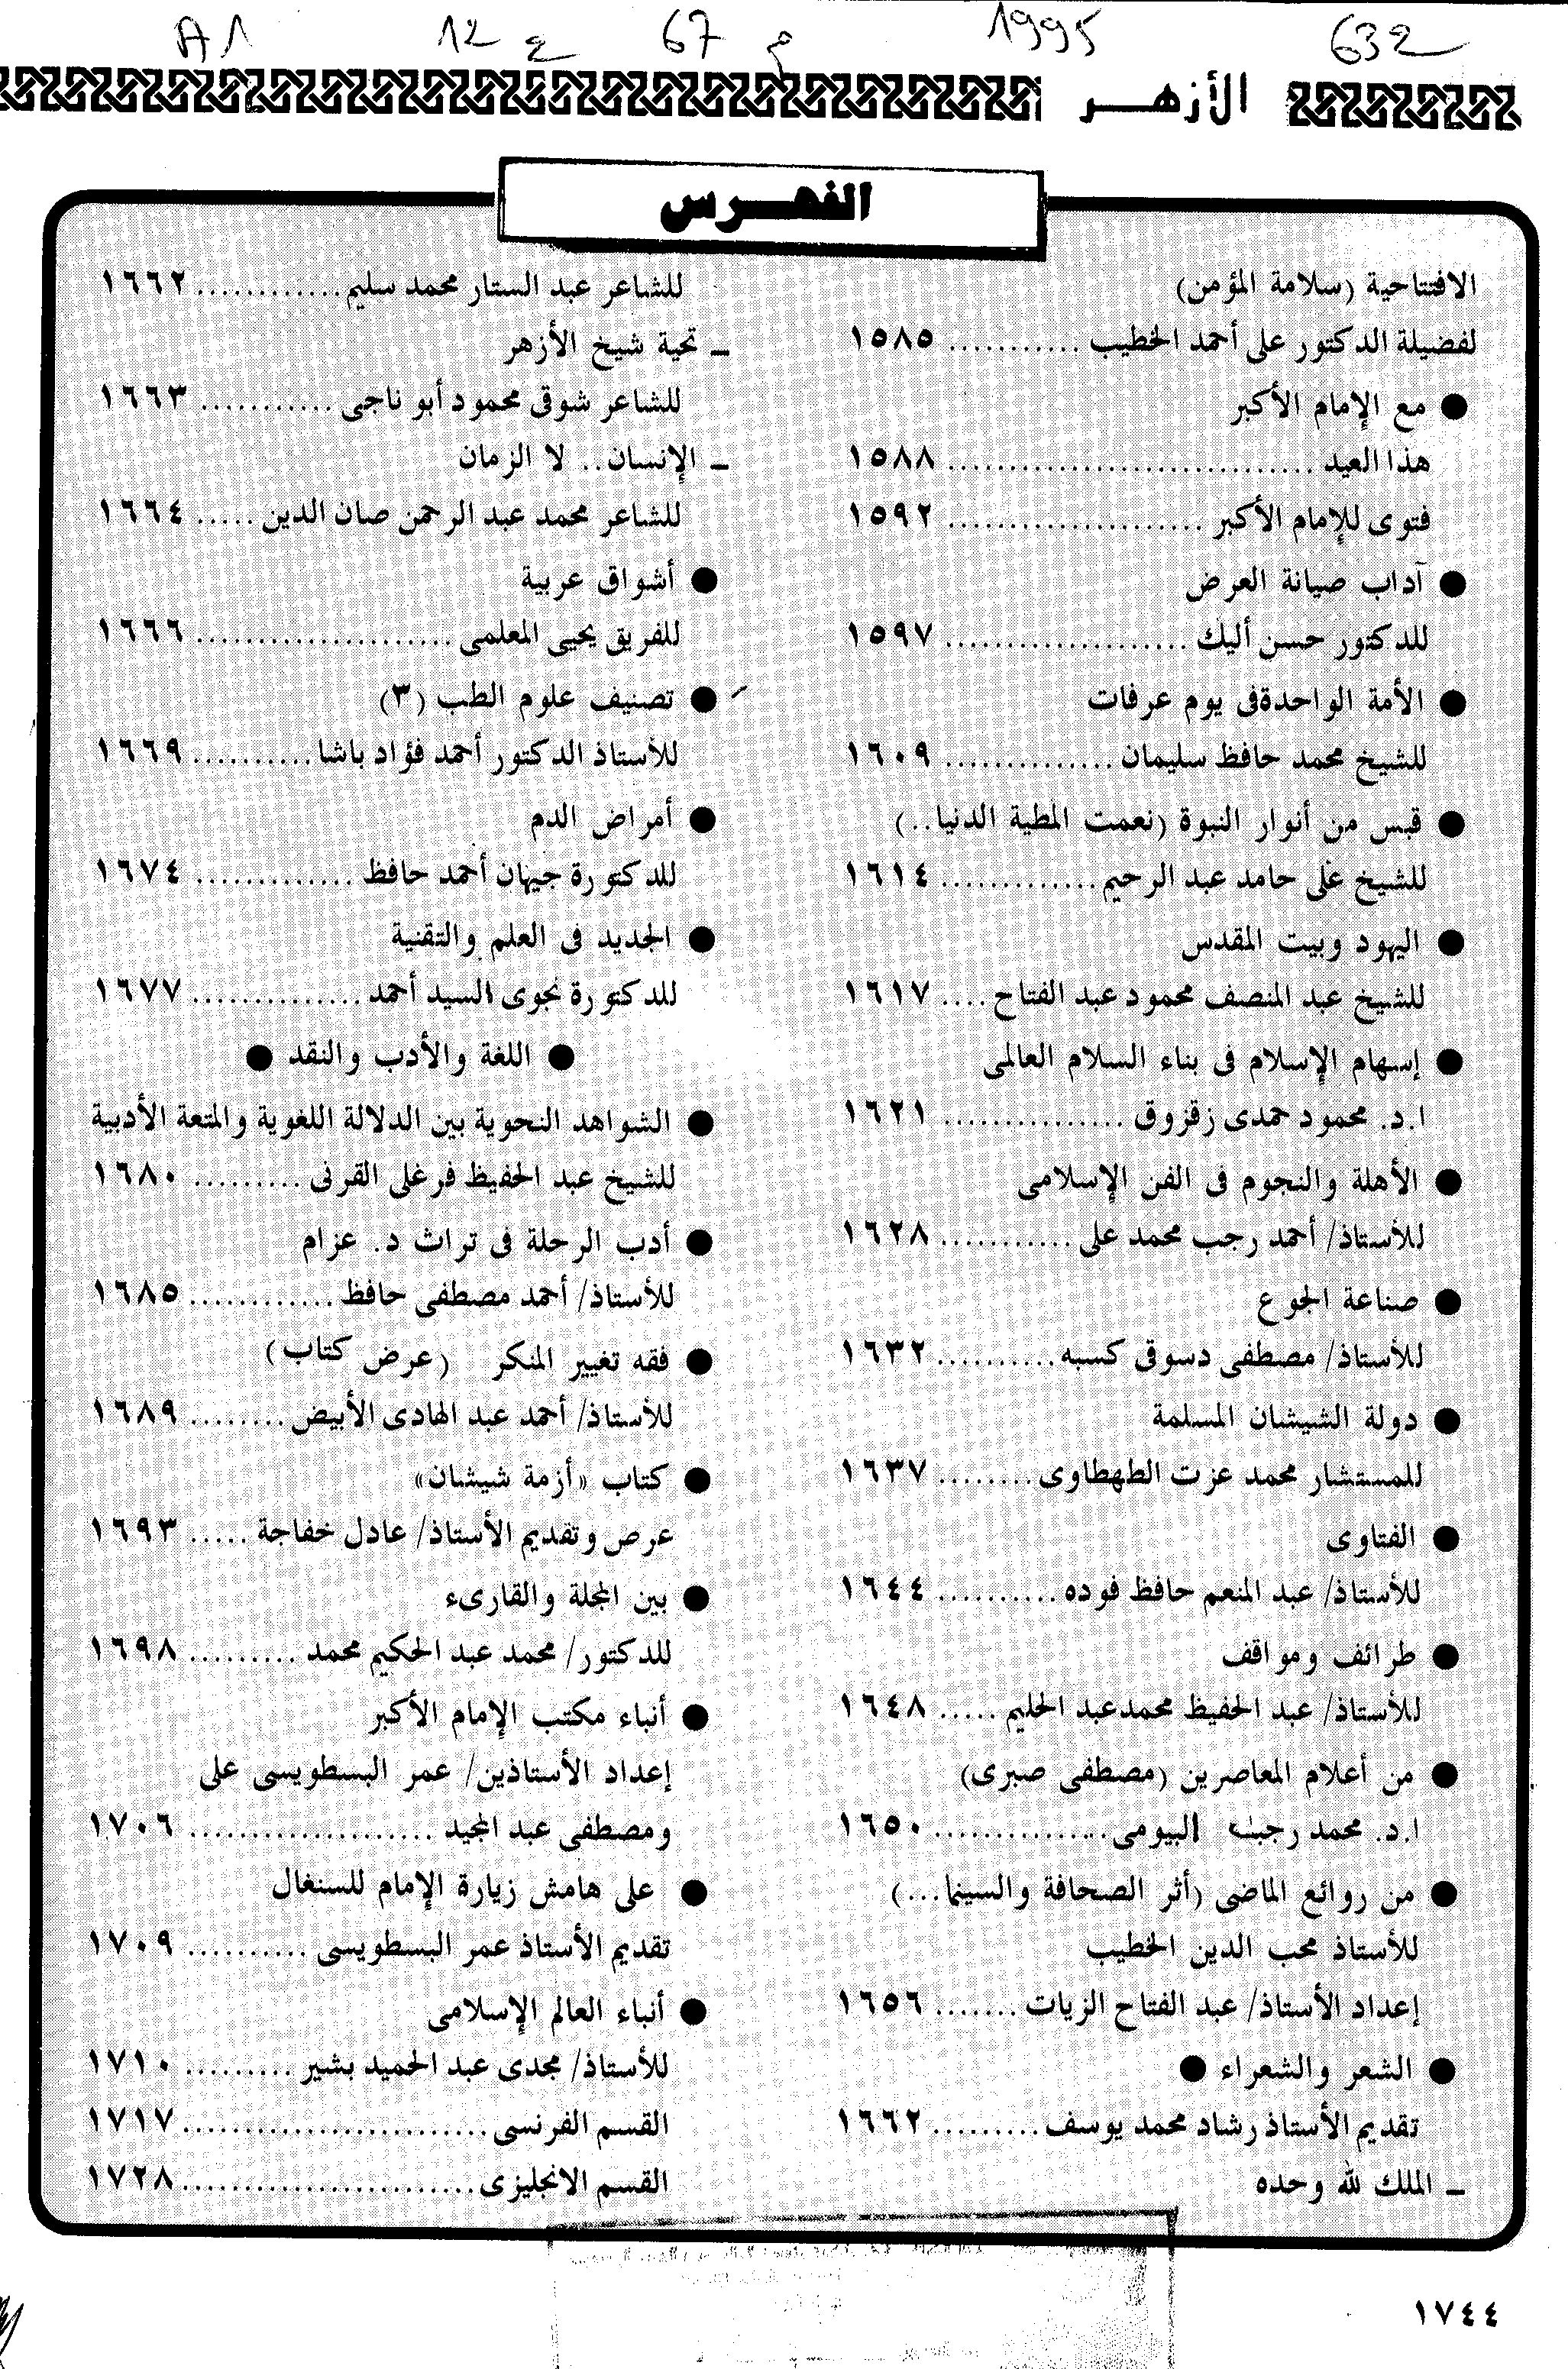 632 1995 م 67 ع 12 A1
الأزهـــر
الفهــرس
الافتتاحية (سلامة المؤمن)
لفضيلة الدكتور على أحمد الخطيب ........... ١٥٨٥
● مع الإمام الأكبر
هذا العيد .............................. ١٥٨٨
فتوى للإمام الأكبر ..................... ١٥٩٢
● آداب صيانة العرض
للدكتور حسن أليك .................... ١٥٩٧
● الأمة الواحدةفى يوم عرفات
للشيخ محمد حافظ سليمان .............. ١٦٠٩
● قبس من أنوار النبوة (نعمت المطية الدنيا..)
للشيخ على حامد عبد الرحيم ............. ١٦١٤
● اليهود وبيت المقدس
للشيخ عبد المنصف محمود عبد الفتاح .... ١٦١٧
● إسهام الإسلام فى بناء السلام العالمى
ا.د. محمود حمدى زقزوق ............... ١٦٢١
● الأهلة والنجوم فى الفن الإسلامى
للأستاذ/ أحمد رجب محمد على ........... ١٦٢٨
● صناعة الجوع
للأستاذ/ مصطفى دسوقى كسبه .......... ١٦٣٢
● دولة الشيشان المسلمة
للمستشار محمد عزت الطهطاوى ........ ١٦٣٧
● الفتاوى
للأستاذ/ عبد المنعم حافظ فوده .......... ١٦٤٤
● طرائف ومواقف
للأستاذ/ عبد الحفيظ محمدعبد الحليم ..... ١٦٤٨
● من أعلام المعاصرين (مصطفى صبرى)
ا.د. محمد رجب البيومى .............. ١٦٥٠
● من روائع الماضى (أثر الصحافة والسينما...)
للأستاذ محب الدين الخطيب
إعداد الأستاذ/ عبد الفتاح الزيات ....... ١٦٥٦
● الشعر والشعراء ●
تقديم الأستاذ رشاد محمد يوسف ......... ١٦٦٢
ـ الملك لله وحده
للشاعر عبد الستار محمد سليم ............ ١٦٦٢
ـ تحية شيخ الأزهر
للشاعر شوقى محمود أبو ناجى ........... ١٦٦٣
ـ الإنسان.. لا الزمان
للشاعر محمد عبد الرحمن صان الدين ..... ١٦٦٤
● أشواق عربية
للفريق يحيى المعلمى ..................... ١٦٦٦
● تصنيف علوم الطب (٣)
للأستاذ الدكتور أحمد فؤاد باشا .......... ١٦٦٩
● أمراض الدم
للدكتورة جيهان أحمد حافظ ............. ١٦٧٤
● الجديد فى العلم والتقنية
للدكتورة نجوى السيد أحمد .............. ١٦٧٧
● اللغة والأدب والنقد ●
● الشواهد النحوية بين الدلالة اللغوية والمتعة الأدبية
للشيخ عبد الحفيظ فرغلى القرنى ......... ١٦٨٠
● أدب الرحلة فى تراث د. عزام
للأستاذ/ أحمد مصطفى حافظ ............ ١٦٨٥
● فقه تغيير المنكر (عرض كتاب)
للأستاذ/ أحمد عبد الهادى الأبيض ........ ١٦٨٩
● كتاب «أزمة شيشان»
عرض وتقديم الأستاذ/ عادل خفاجة ..... ١٦٩٣
● بين المجلة والقارىء
للدكتور/ محمد عبد الحكيم محمد ......... ١٦٩٨
● أنباء مكتب الإمام الأكبر
إعداد الأستاذين/ عمر البسطويسى على
ومصطفى عبد المجيد .................... ١٧٠٦
● على هامش زيارة الإمام للسنغال
تقديم الأستاذ عمر البسطويسى .......... ١٧٠٩
● أنباء العالم الإسلامى
للأستاذ/ مجدى عبد الحميد بشير ......... ١٧١٠
القسم الفرنسى ......................... ١٧١٧
القسم الانجليزى ........................ ١٧٢٨
١٧٤٤